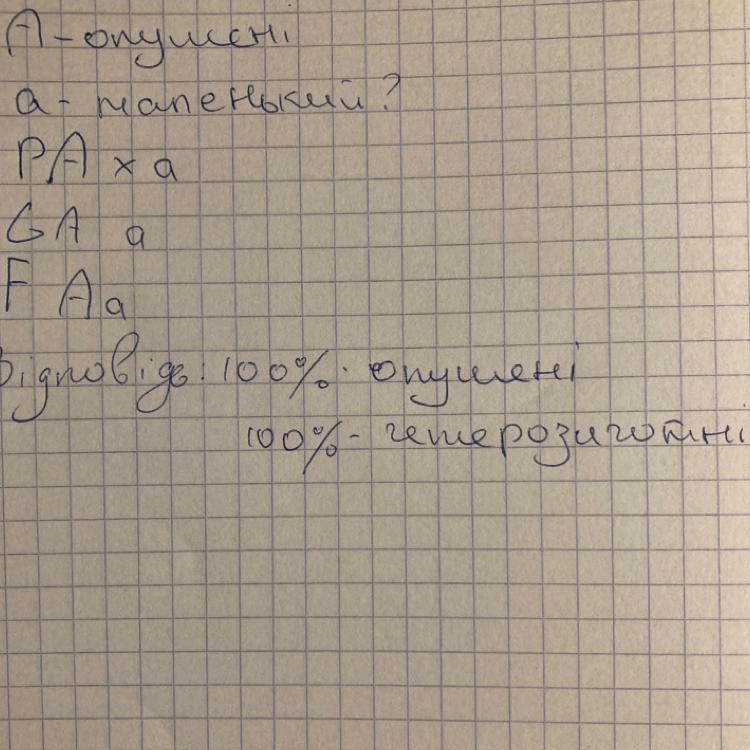 А - опушені
а - маленький?
P A x a
G A a
F Aa
Відповідь: 100% - опушені
100% - гетерозиготні